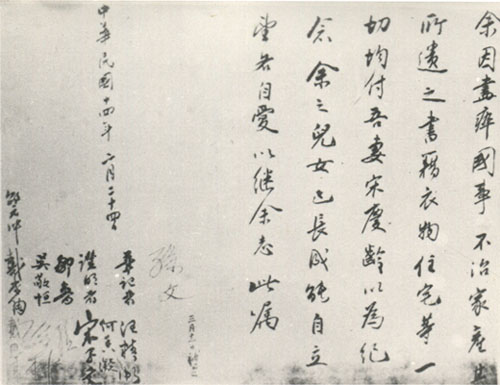 余因盡瘁國事不治家產其
所遺之書籍衣物住宅等一
切均付吾妻宋慶齡以為紀
念余之兒女已長成能自立
望各自愛以继余志此属
孫文
三月十一日補簽
中華民國十四年二月二十四日
筆記者 汪精衛
證明者 宋子文
何香凝
鄒魯
孫科
吳敬恒
戴恩賽
邵元冲